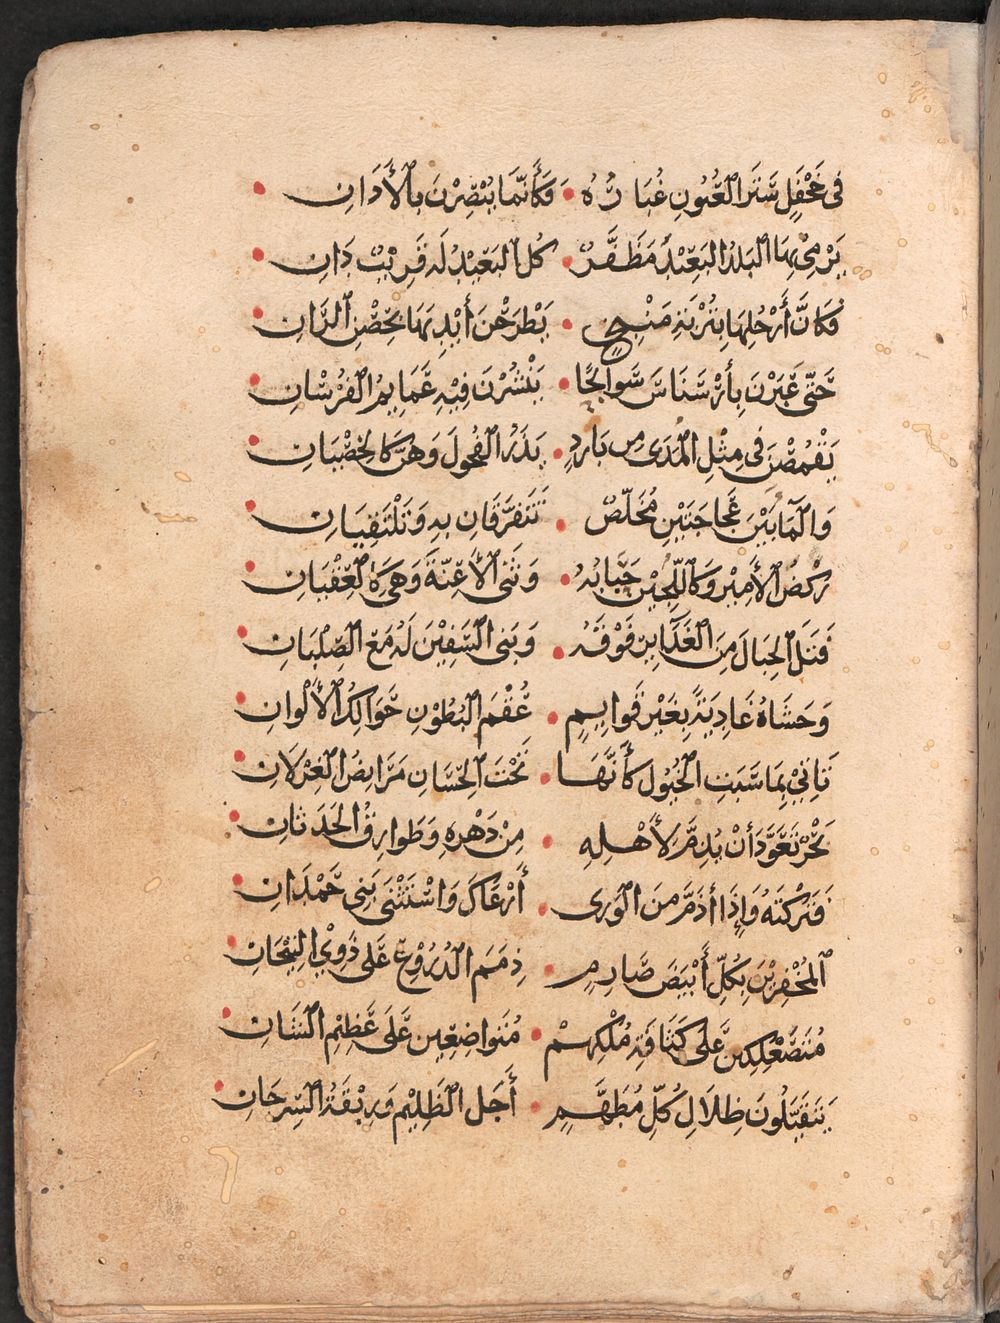 فِى جَحْفَلٍ سَتَرَ الْعُيُونِ غُبَارُهُ • فَكَأَنَّمَا يُبْصِرْنَ بِالْأٓذَانِ •
يَرْمِىْ بِهَا الْبَلَدَ الْبَعِيْدَ مُظَفَّرٌ • كُلُّ الْبَعِيْدِ لَهُ قَرِيْبٌ دَانِ •
فَكَأَنَّ أَرْجُلَهَا بِتُرْبَةِ مَنْبِجٍ • يَطْرَحْنَ أَيْدِيَهَا بِحِصْنِ الرَّانِ •
حَتّٰى عَبَرْنَ بِأَرْسَنَاسَ سَوَابِحًا • يَنْشُرْنَ فِيْهِ عَمَايِمَ الْفُرْسَانِ •
يَقْمُصْنَ فِى مِثْلِ الْمُدَى مِن بَارِدٍ • يَذَرُ الْفُحُولَ وَهُنَّ كَالْخِصْيَانِ •
وَالْمَا بَيْنَ عَجَاجَتَيْنِ مُخَلِّصٌ • تَتَفَرَّقَانِ بِهِ وَتَلْتَقِيَانِ •
رَكَضَ الْأَمِيْرُ وَكَاللُّجَيْنِ حَبَابُهُ • وَثَنَى الْأَعِنَّةَ وَهِىَ كَالْعِقْيَانِ •
فَتَلَ الْحِبَالَ مِنَ الْغَدَايِرِ فَوْقَهُ • وَبَنَى السَّفِيْنَ لَهُ مَعَ الصُّلْبَانِ •
وَحَشَاهُ عَادِيَةً بِغَيْرِ قَوَايِمٍ • عُقْمَ الْبُطُوْنِ حَوَالِكَ الْأَلْوَانِ •
تَاتِىْ بِمَا سَبَتِ الْخُيُولُ كَأَنَّهَا • تَحْتَ الْحِسَانِ مَرَابِضُ الْغِزْلَانِ •
بَحْرٌ تَعَوَّدَ أَنْ يُذِمَّ لِأَهْلِهِ • مِنْ دَهْرِهِ وَطَوَارِقِ الْحَدَثَانِ •
فَتَرَكْتَهُ وَإِذَا أَذَمَّ مِنَ الْوَرٰى • أَرْعَاكَ وَاسْتَثْنَى بَنِى حَمْدَانِ •
اَلْمُخْفِرِيْنَ بِكُلِّ أَبْيَضَ صَارِمٍ • ذِمَمَ الدُّرُوْعِ عَلٰى ذَوِىْ التِّيْجَانِ •
مُتَصَعْلِكِيْنَ عَلٰى كَثَافَةِ مُلْكِهِمْ • مُتَوَاضِعِيْنَ عَلَى عَظِيْمِ الشَّانِ •
يَتَقَيَّلُونَ ظِلَالَ كُلِّ مُطَهَّمٍ • أَجَلِ الظَّلِيْمِ وَرِبْقَةِ السِّرْحَانِ •